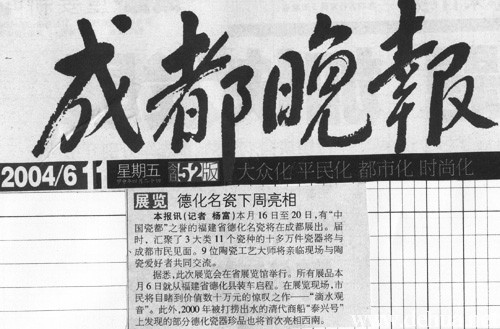 成都晚報
2004/6 11 星期五 今日52版 大众化 平民化 都市化 时尚化
展览 德化名瓷下周亮相
本报讯(记者 杨富)本月16日至20日,有“中
国瓷都”之誉的福建省德化名瓷将在成都展出。届
时,汇聚了3大类11个瓷种的十多万件瓷器将与
成都市民见面。9位陶瓷工艺大师将亲临现场与陶
瓷爱好者共同交流。
据悉,此次展览会在省展览馆举行。所有展品本
月6日就从福建省德化县装车启程。在展览现场,市
民将目睹到价值数十万元的惊叹之作——“滴水观
音”。此外,2000年被打捞出水的清代商船“泰兴号”
上发现的部分德化瓷器珍品也将首次亮相西南。